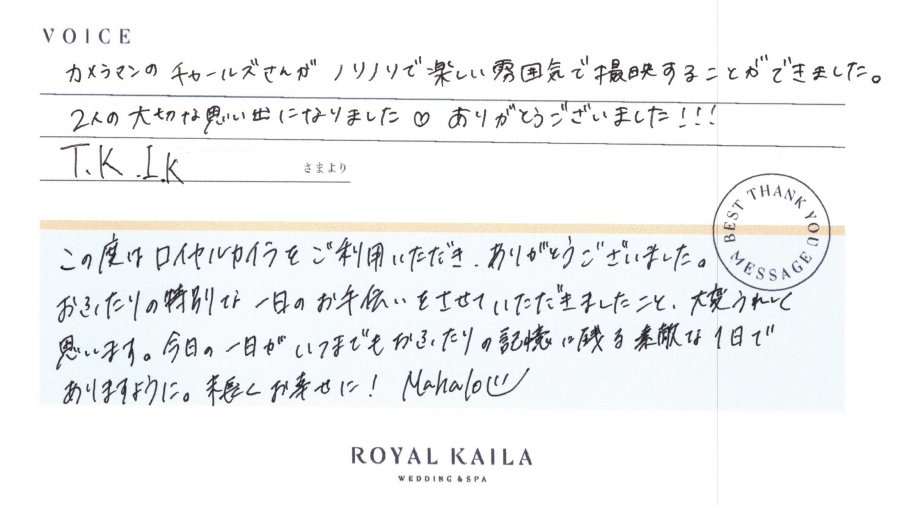 VOICE
カメラマンの チャールズさんが ノリノリで楽しい雰囲気で撮映することができました。
2人の大切な思い出になりました♡ ありがとうございました!!!
T.K .I.K さまより
BEST THANK YOU MESSAGE
この度は ロイヤルカイラを ご利用いただき、ありがとうございました。
おふたりの特別な 一日の お手伝いをさせていただきましたこと、大変うれしく
思います。今日の一日が いつまでも おふたりの記憶に残る 素敵な 1日で
ありますように。末長く お幸せに! Mahalo
ROYAL KAILA
WEDDING & SPA